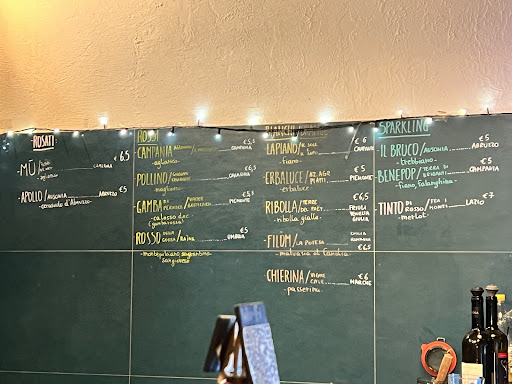 ROSATI
MÙ €6,5
CAMPANIA
APOLLO/AUSONIA ABRUZZO €5
cerasuolo d'Abruzzo
ROSSI
CAMPANIA €5,5
CAMPANIA
-aglianico
POLLINO/ €5,5
CALABRIA
-magliocco
GAMBA DI PERNICE/ €5
PIEMONTE
-calosso doc
(gamba rossa)
ROSSO DELLA GOBBA/RAÌNA €5
UMBRIA
-montepulciano
sangiovese
BIANCHI/ORANGE
LAPIANO/ €6
CAMPANIA
-fiano
ERBALUCE/AZ. AGR. €5
PIEMONTE
-erbaluce
RIBOLLA/TERRE €6,5
FRIULI
VENEZIA
GIULIA
-ribolla gialla
FILOM/LA POTESA EMILIA
ROMAGNA €6
-malvasia di Candia
CHIERINA/VIGNE CAVE €6
MARCHE
-passerina
SPARKLING
IL BRUCO/AUSONIA €5
ABRUZZO
-trebbiano
BENEPOP/TERRA DI BRIGANTI €5
CAMPANIA
-fiano, falanghina
TINTO DI ROSSO/FRA I MONTI €7
LAZIO
-merlot